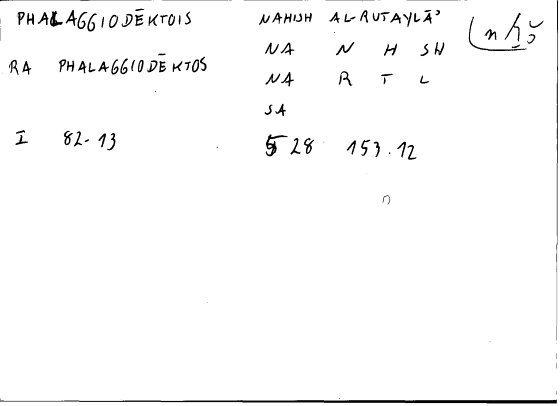 PHALAGGIODĒKTOIS
RA PHALAGGIODĒKTOS
I 82-13
NAHISH AL-RUTAYLĀ'
NA N H SH
NA R T L
SA
5 28 153.12